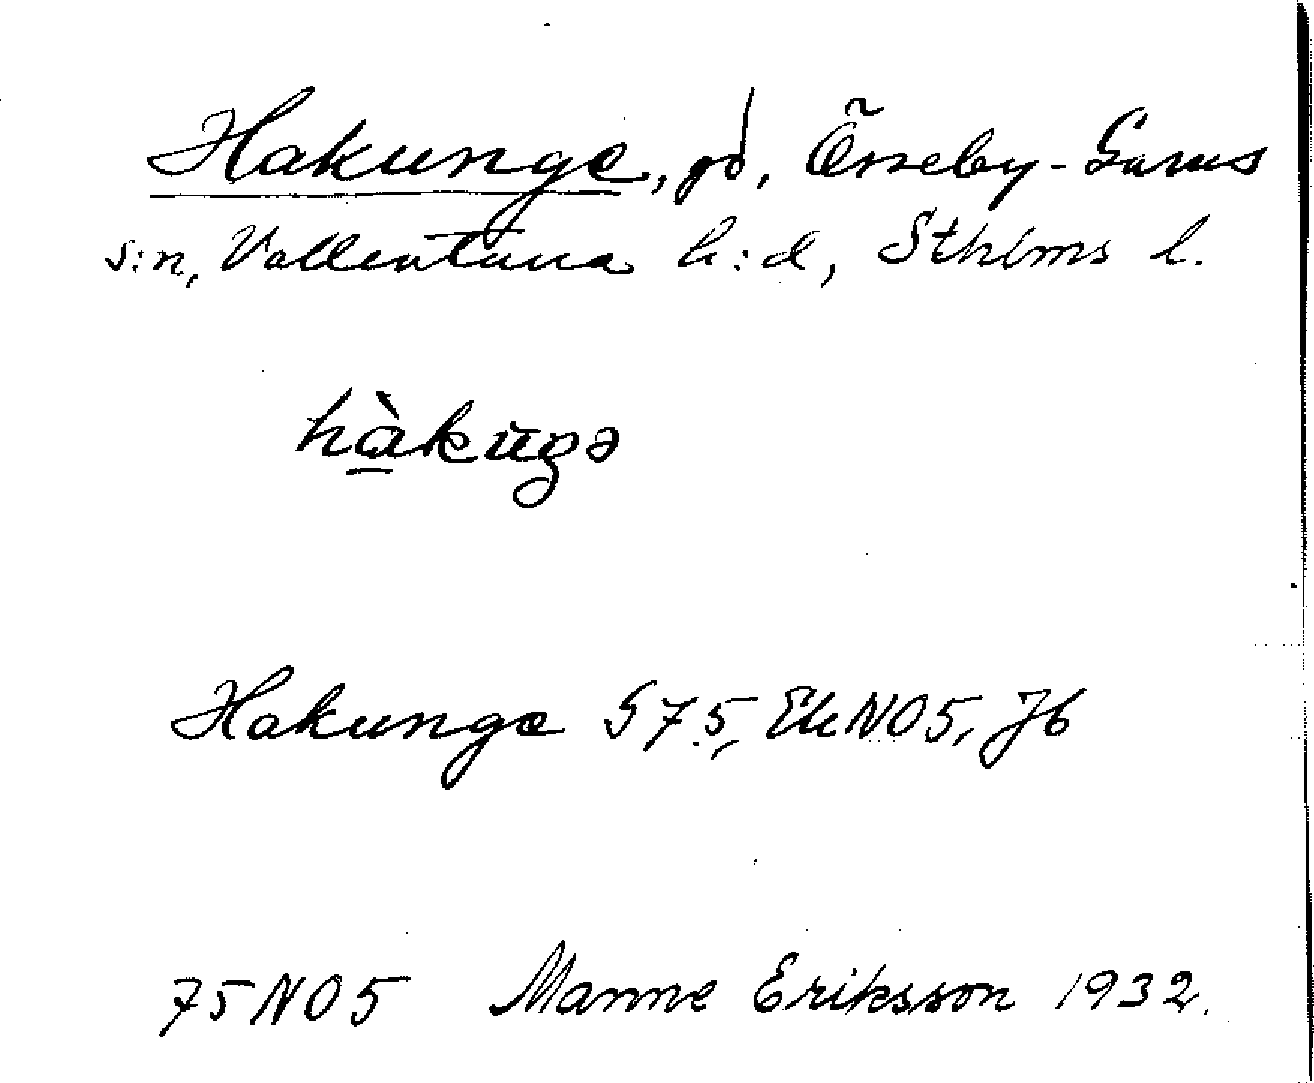 Hakunge, gd, Össeby-Garns
s:n, Vallentuna h:d, Sthlms l.
hàkuŋə
Hakunge S75, EkNO5, Jb
75NO5 Manne Eriksson 1932.